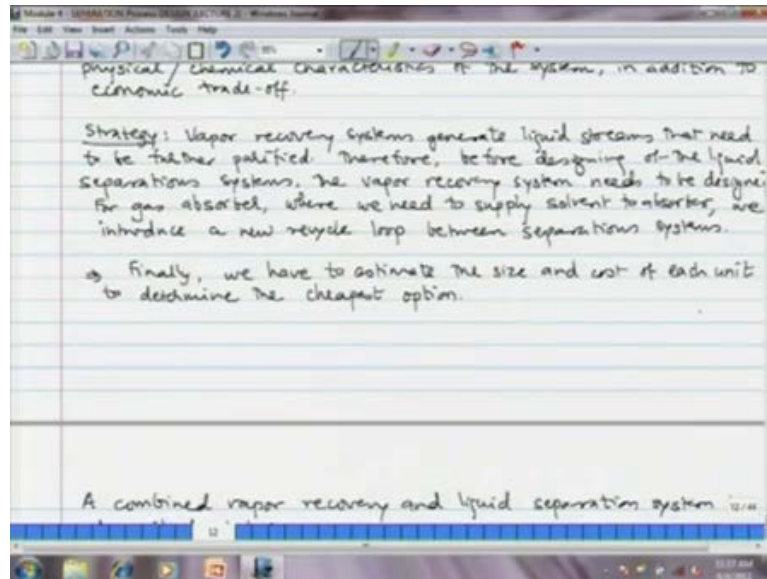 Module 4 - SEPARATION Process DESIGN (LECTURE 2) - Windows Journal
File Edit View Insert Actions Tools Help
physical/chemical characteristics of the system, in addition to
economic trade-off.
Strategy: Vapor recovery systems generate liquid streams that need
to be further purified. Therefore, before designing of the liquid
separations systems, the vapor recovery system needs to be designe
For gas absorber, where we need to supply solvent to absorber, we
introduce a new recycle loop between separations systems.
⇒ Finally, we have to estimate the size and cost of each unit
to determine the cheapest option.
A combined vapor recovery and liquid separation system
12